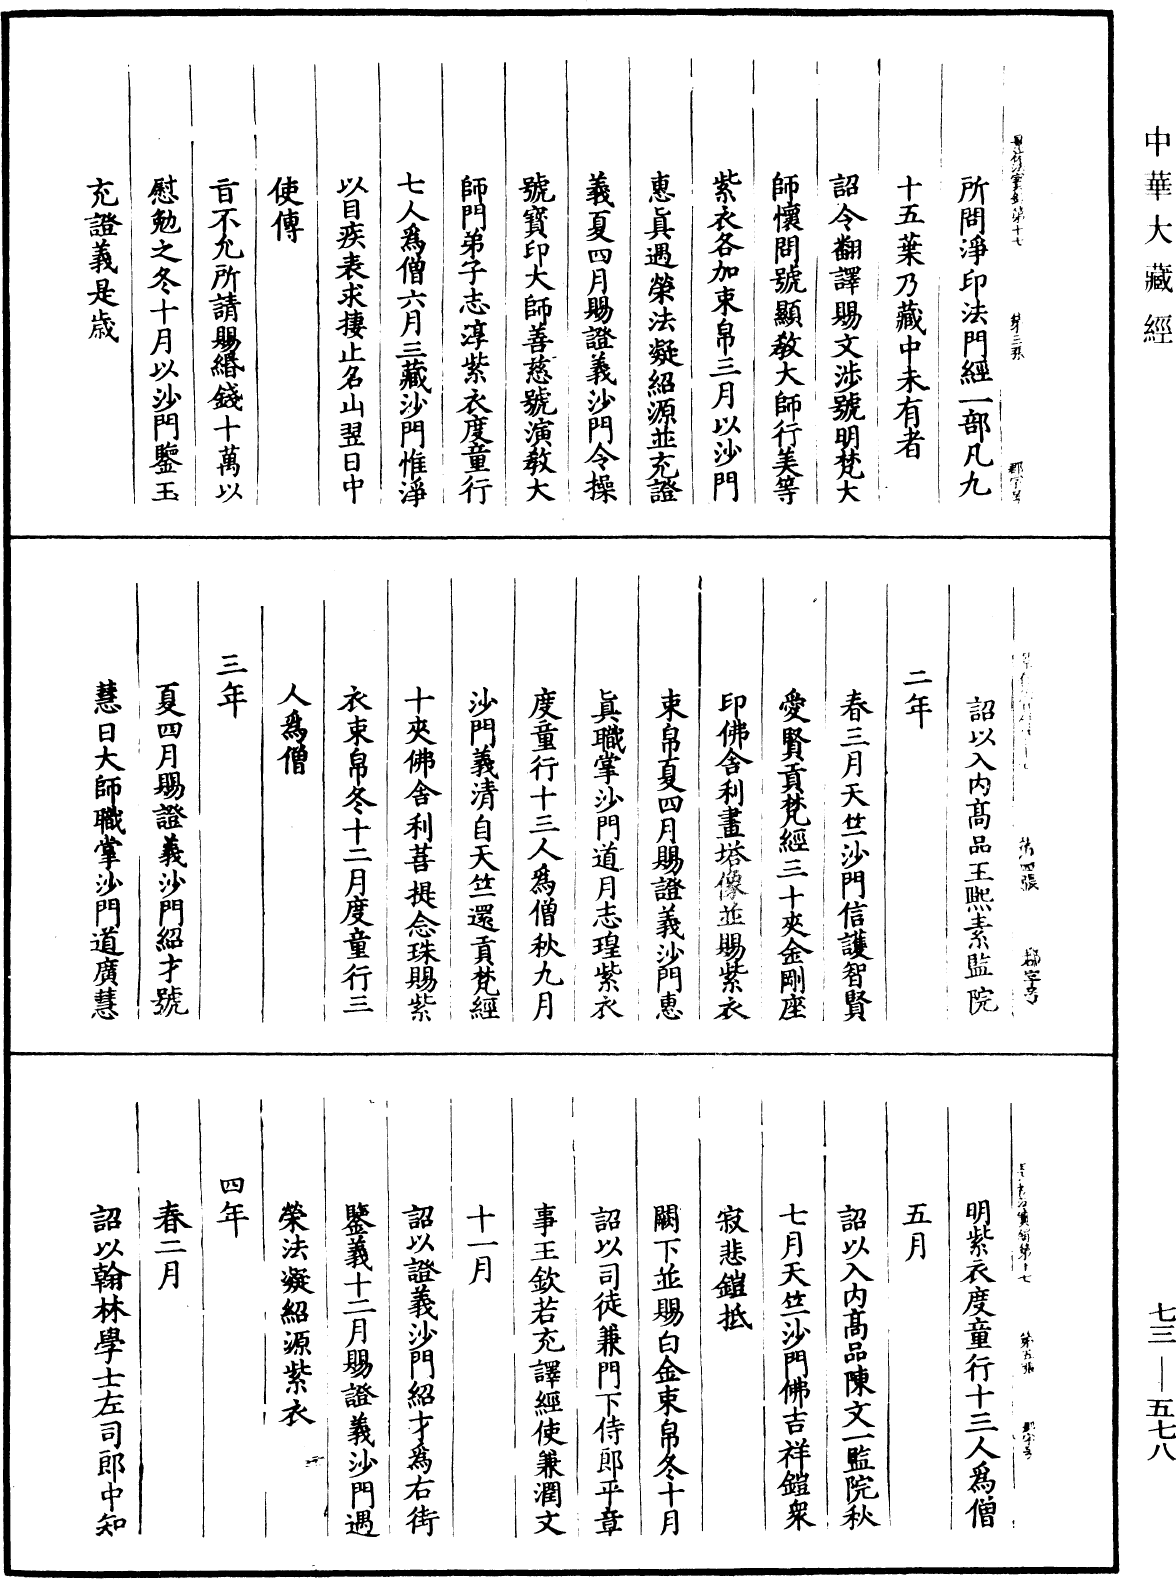 中華大藏經
第三張
所問淨印法門經一部凡九
十五葉乃藏中未有者
詔令翻譯賜文涉號明梵大
師懷問號顯教大師行美等
紫衣各加束帛三月以沙門
惠真遇榮法凝紹源並充證
義夏四月賜證義沙門令操
號寶印大師善慈號演教大
師門弟子志淳紫衣度童行
七人爲僧六月三藏沙門惟淨
以目疾表求捿止名山翌日中
使傳
旨不允所請賜緡錢十萬以
慰勉之冬十月以沙門鑒玉
充證義是歲
第四張
郡字号
詔以入内髙品王熙素監院
二年
春三月天竺沙門信護智賢
愛賢貢梵經三十夾金剛座
印佛舍利畫塔像並賜紫衣
束帛夏四月賜證義沙門惠
真職掌沙門道月志瑝紫衣
度童行十三人爲僧秋九月
沙門義清自天竺還貢梵經
十夾佛舍利菩提念珠賜紫
衣束帛冬十二月度童行三
人爲僧
三年
夏四月賜證義沙門紹才號
慧日大師職掌沙門道廣慧
第五張
明紫衣度童行十三人爲僧
五月
詔以入内髙品陳文一監院秋
七月天竺沙門佛吉祥鎧衆
寂悲鎧抵
闕下並賜白金束帛冬十月
詔以司徒兼門下侍郎平章
事王欽若充譯經使兼潤文
十一月
詔以證義沙門紹才爲右街
鑒義十二月賜證義沙門遇
榮法凝紹源紫衣
四年
春二月
詔以翰林學士左司郎中知
七三—五七八